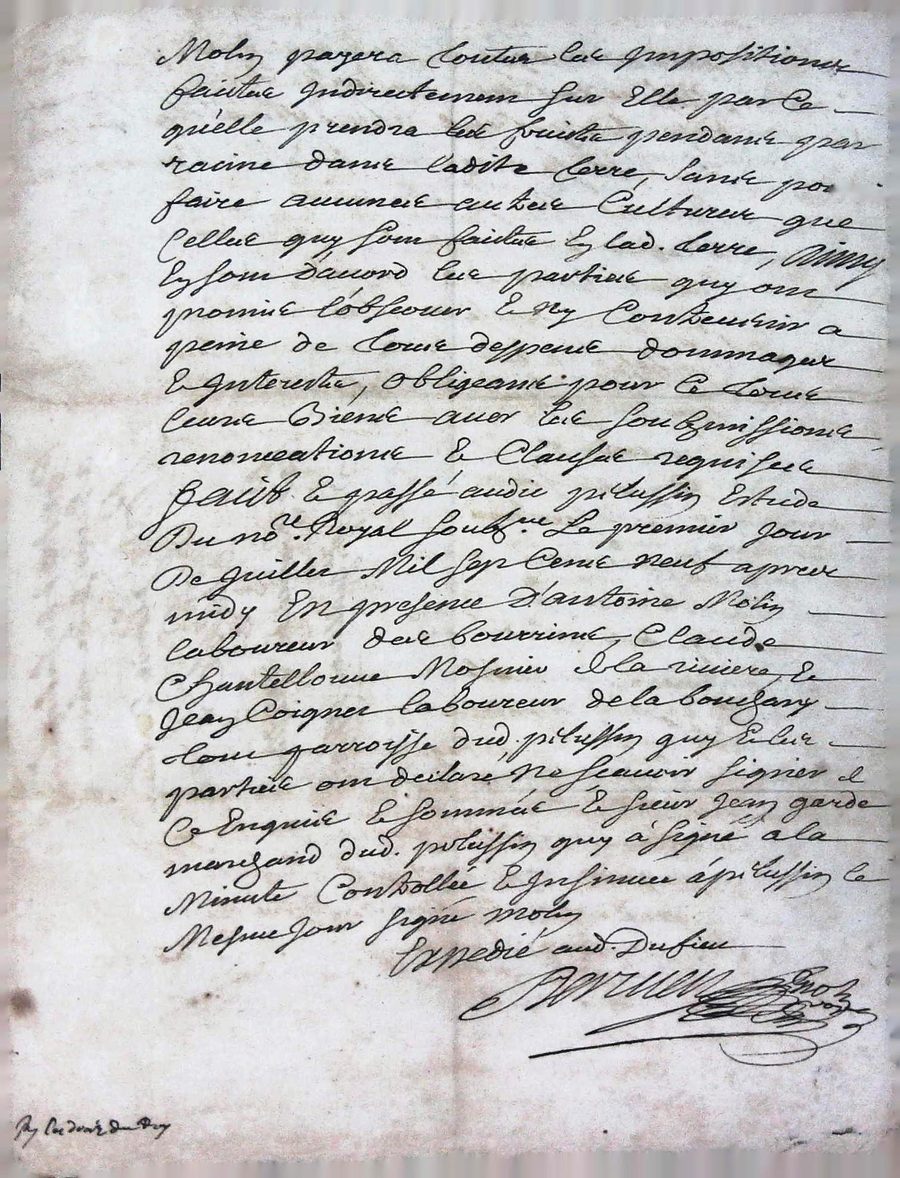 Molin payera toutes les Impositions
faictes Indirectement sur Elle parce
quelle prendra les fruicts pendants par
racine dans ladite terre, sans po
faire aucunes autres Cultures que
Celles quy sont faictes En lad. terre, Ainsy
En sont d'accord les parties quy ont
promis l'observer Et ny Contrevenir a
peine de tous despens dommages
Et Interests, obligeants pour Ce tous
leurs Biens avec les soubmissions
renonciations Et Clauses requises
faict Et passé audit pelussin Estude
Du no.re Royal soubs.ne Le premier Jour
De Juillet Mil sept Cents neuf apres
midy En presence D'antoine Molin
laboureur des bourrins, Claude
Chantellouve Mosnier de la riviere, Et
Jean Coignet laboureur de la
tous parroisse dud. pelussin quy Et les
parties ont declaré ne scavoir signer de
Ce Enquis Et sommés Et sieur Jean garde
marchand dud. pelussin quy à signé a la
Minute Controllée Et Insinuée à pelussin le
Mesme Jour signé molin
Expedié aud. Dufieu
les droits du Roy